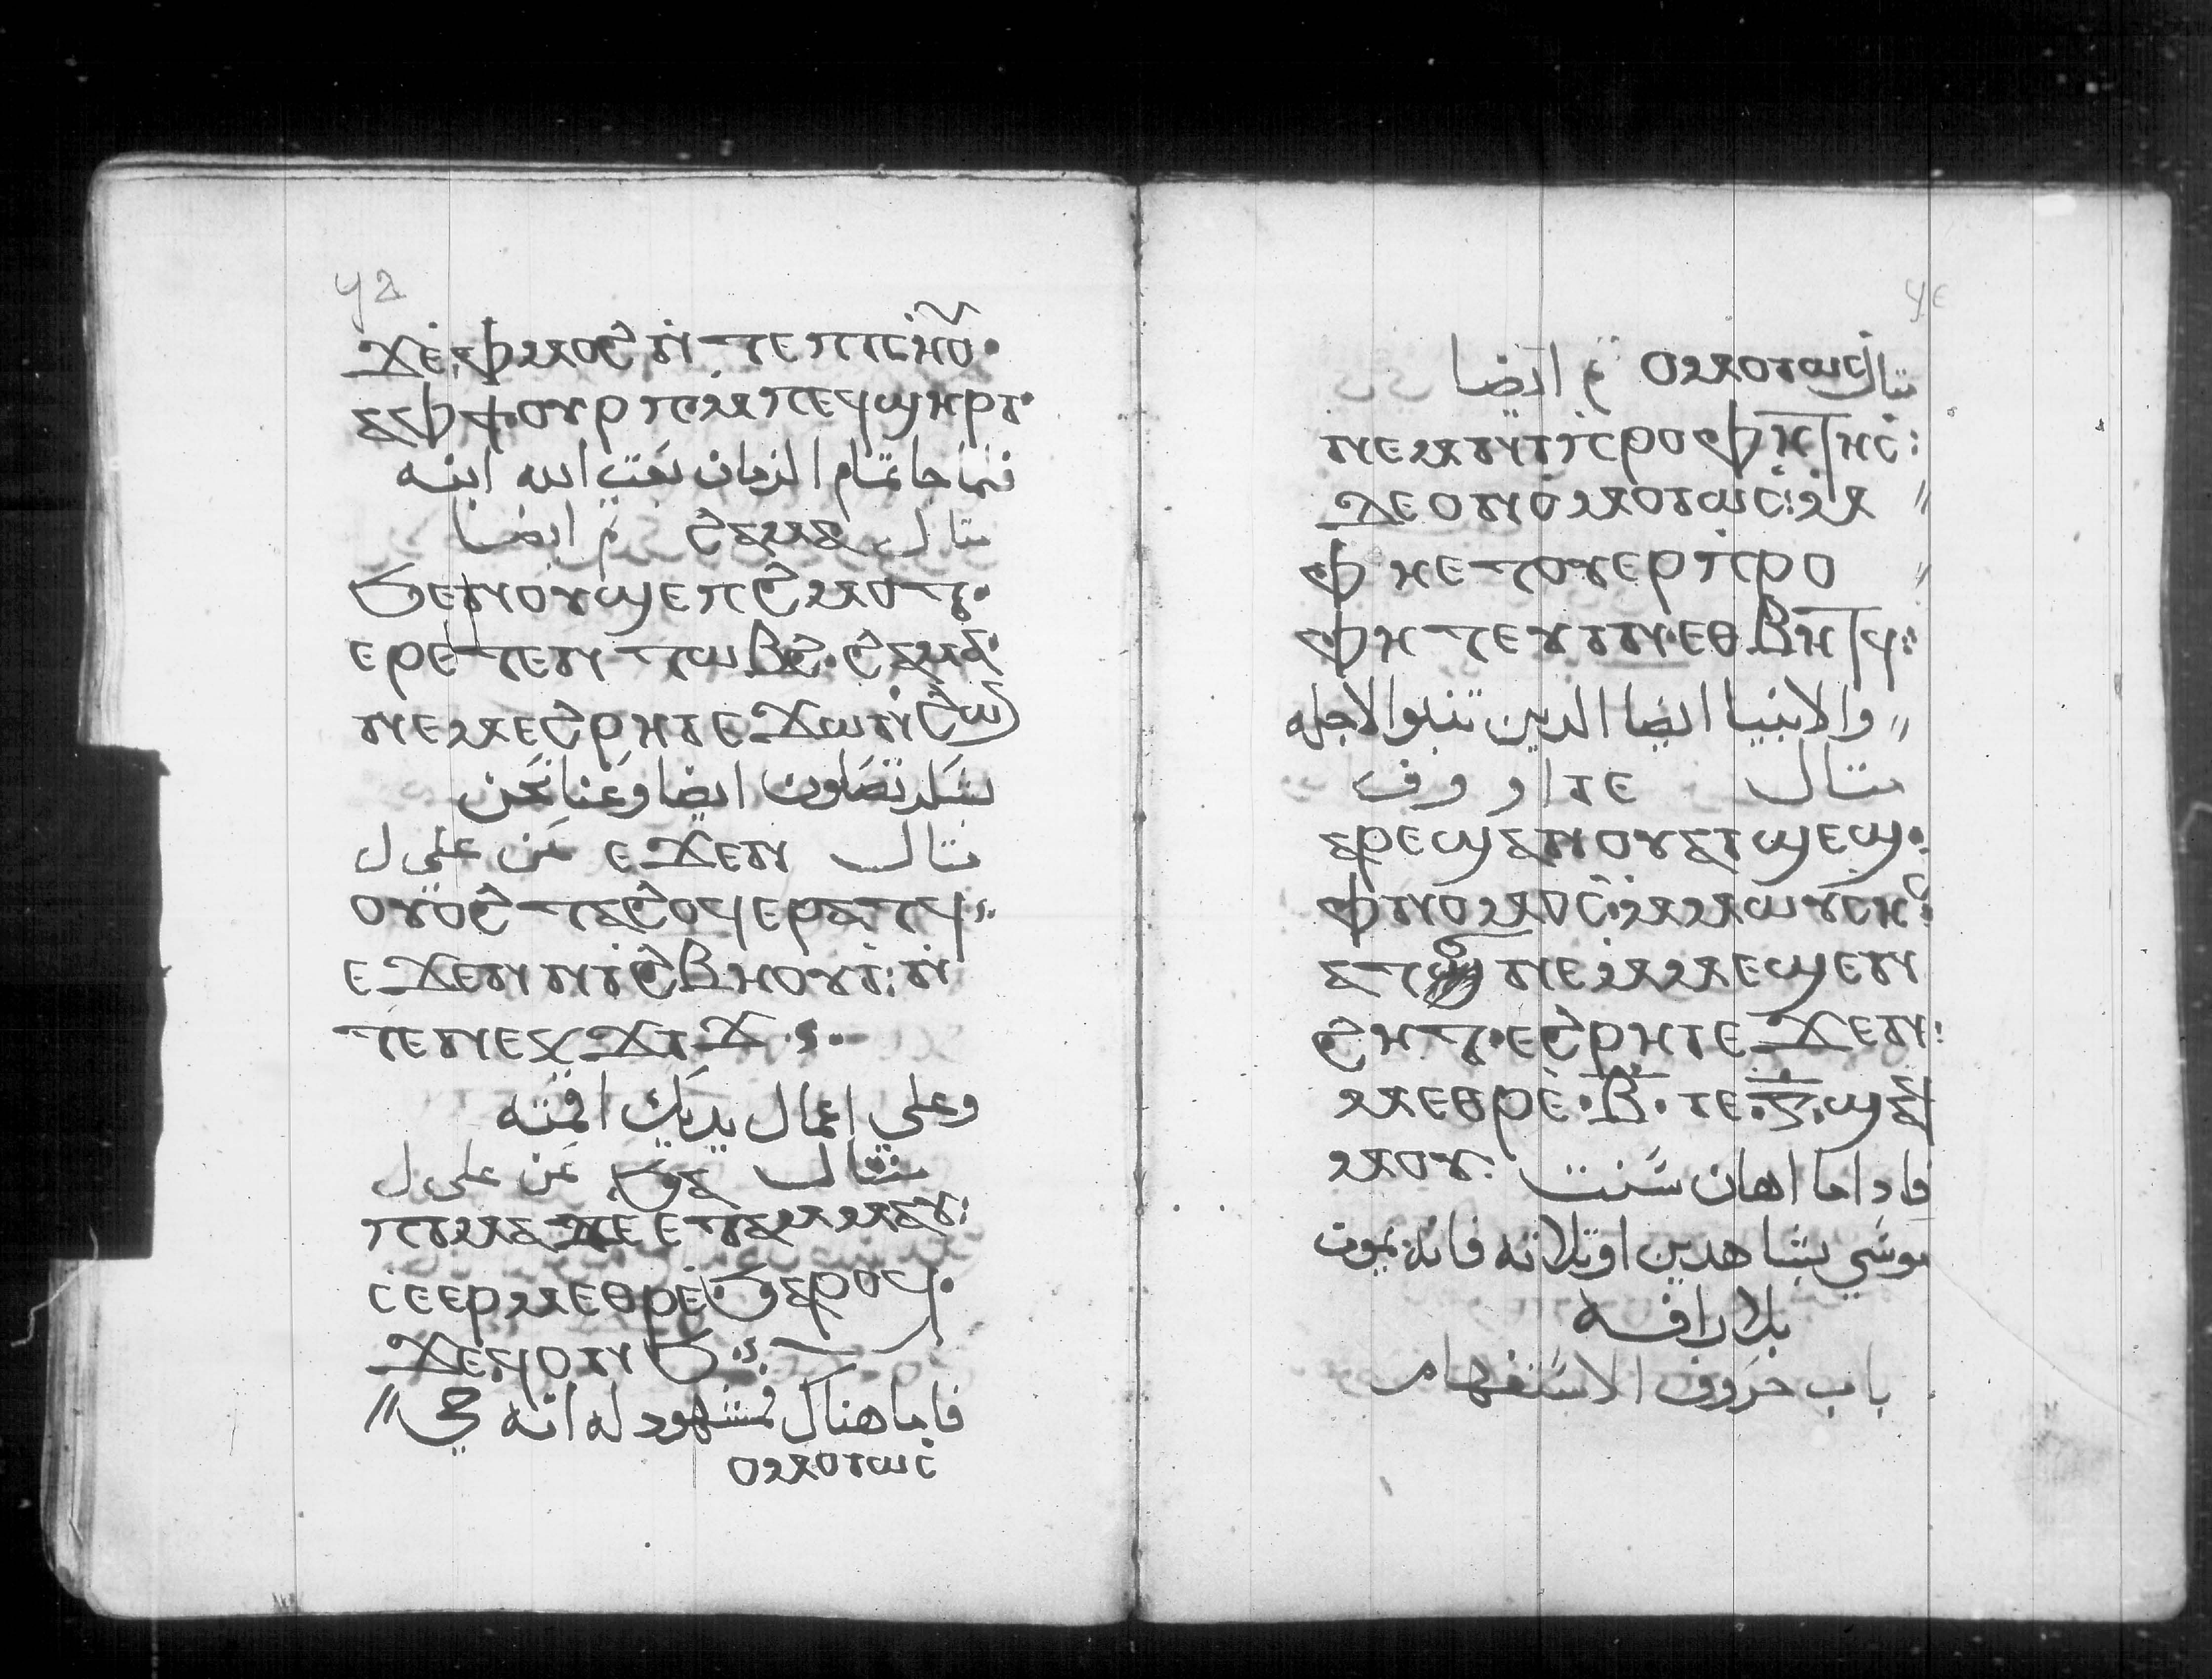 ϥⲇ
ϫⲉ ⲫⲙⲟϩ ⲛ̇ⲧⲉ ⲡⲓⲥⲏⲟⲩ·
ⲁⲫϯ ⲟⲩⲣⲡ ⲙ̇ⲡⲉϥϣⲏⲣⲓ·
فلما جا تمام الزمان بعت الله ابنه
مثال ϩⲁⲙⲁ م ايضا
ϧⲉⲛ ⲟⲩϣⲉⲡϩⲙⲟⲧ·
ⲉⲣⲉⲧⲉⲛⲧⲱⲃϩ· ϩⲁⲙⲁ·
ⲛⲉⲙ ⲉϩⲣⲏⲓ ⲉϫⲱⲛ ϩⲱ
بشكر تصلون ايضا وعنا نحن
مثال ⲉϫⲉⲛ عن على ل
ⲟⲩⲟϩ ⲧⲁϩⲟϥ ⲉⲣⲁⲧϥ
ⲉϫⲉⲛ ⲛⲓϩⲃⲏⲟⲩⲓ: ⲛ̇
ⲧⲉ ⲛⲉⲕϫⲓϫ
وعلى اعمال يديك اقمته
مثال ϧⲁ عن على ل
ⲡⲓⲙⲁ ⲇⲉ ⲉⲧⲉⲙⲙⲁⲩ:
ⲥⲉⲉⲣⲙⲉⲑⲣⲉ ϧⲁⲣⲟϥ·
ϫⲉ ϥⲟⲛϧ
فاما هناك فمشهود له انه حي //
ⲟⲙⲟⲓⲱⲥ
ϥⲉ
مثال ⲟⲙⲟⲓⲱⲥ م ايضا
ⲛⲉⲙ ⲛⲓⲡⲣⲟⲫⲏⲧⲏⲥ:
ϫⲉ ⲟⲛ ⲟⲙⲟⲓⲱⲥ: ⲙ //
ⲫⲏⲉⲧⲟⲩⲉⲣⲡⲣⲟ //
ⲫⲏⲧⲉⲩⲓⲛ· ⲉⲑⲃⲏⲧϥ:
// والانبيا ايضا الدين تنبوا لاجله
مثال ⲓⲉ او وف
ⲁⲣⲉϣⲁⲛ ⲟⲩⲁⲓ ϣⲉϣ·
ⲫⲛⲟⲙⲟⲥ· ⲙⲙⲱⲩⲥⲏⲥ:
ⲛⲉⲙⲙⲉϣⲉⲛ
ϩⲏⲧ· ⲉϩⲣⲏⲓ ⲉϫⲉⲛ:
ⲙⲉⲑⲣⲉ· ⲃ̅· ⲓⲉ· ⲅ̅· ϣⲁϥ
ⲙⲟⲩ: فاداما اهان سنت
موسي بشاهدين او تلاته فانه يموت
بلا رافه
باب حروف الاستفهام